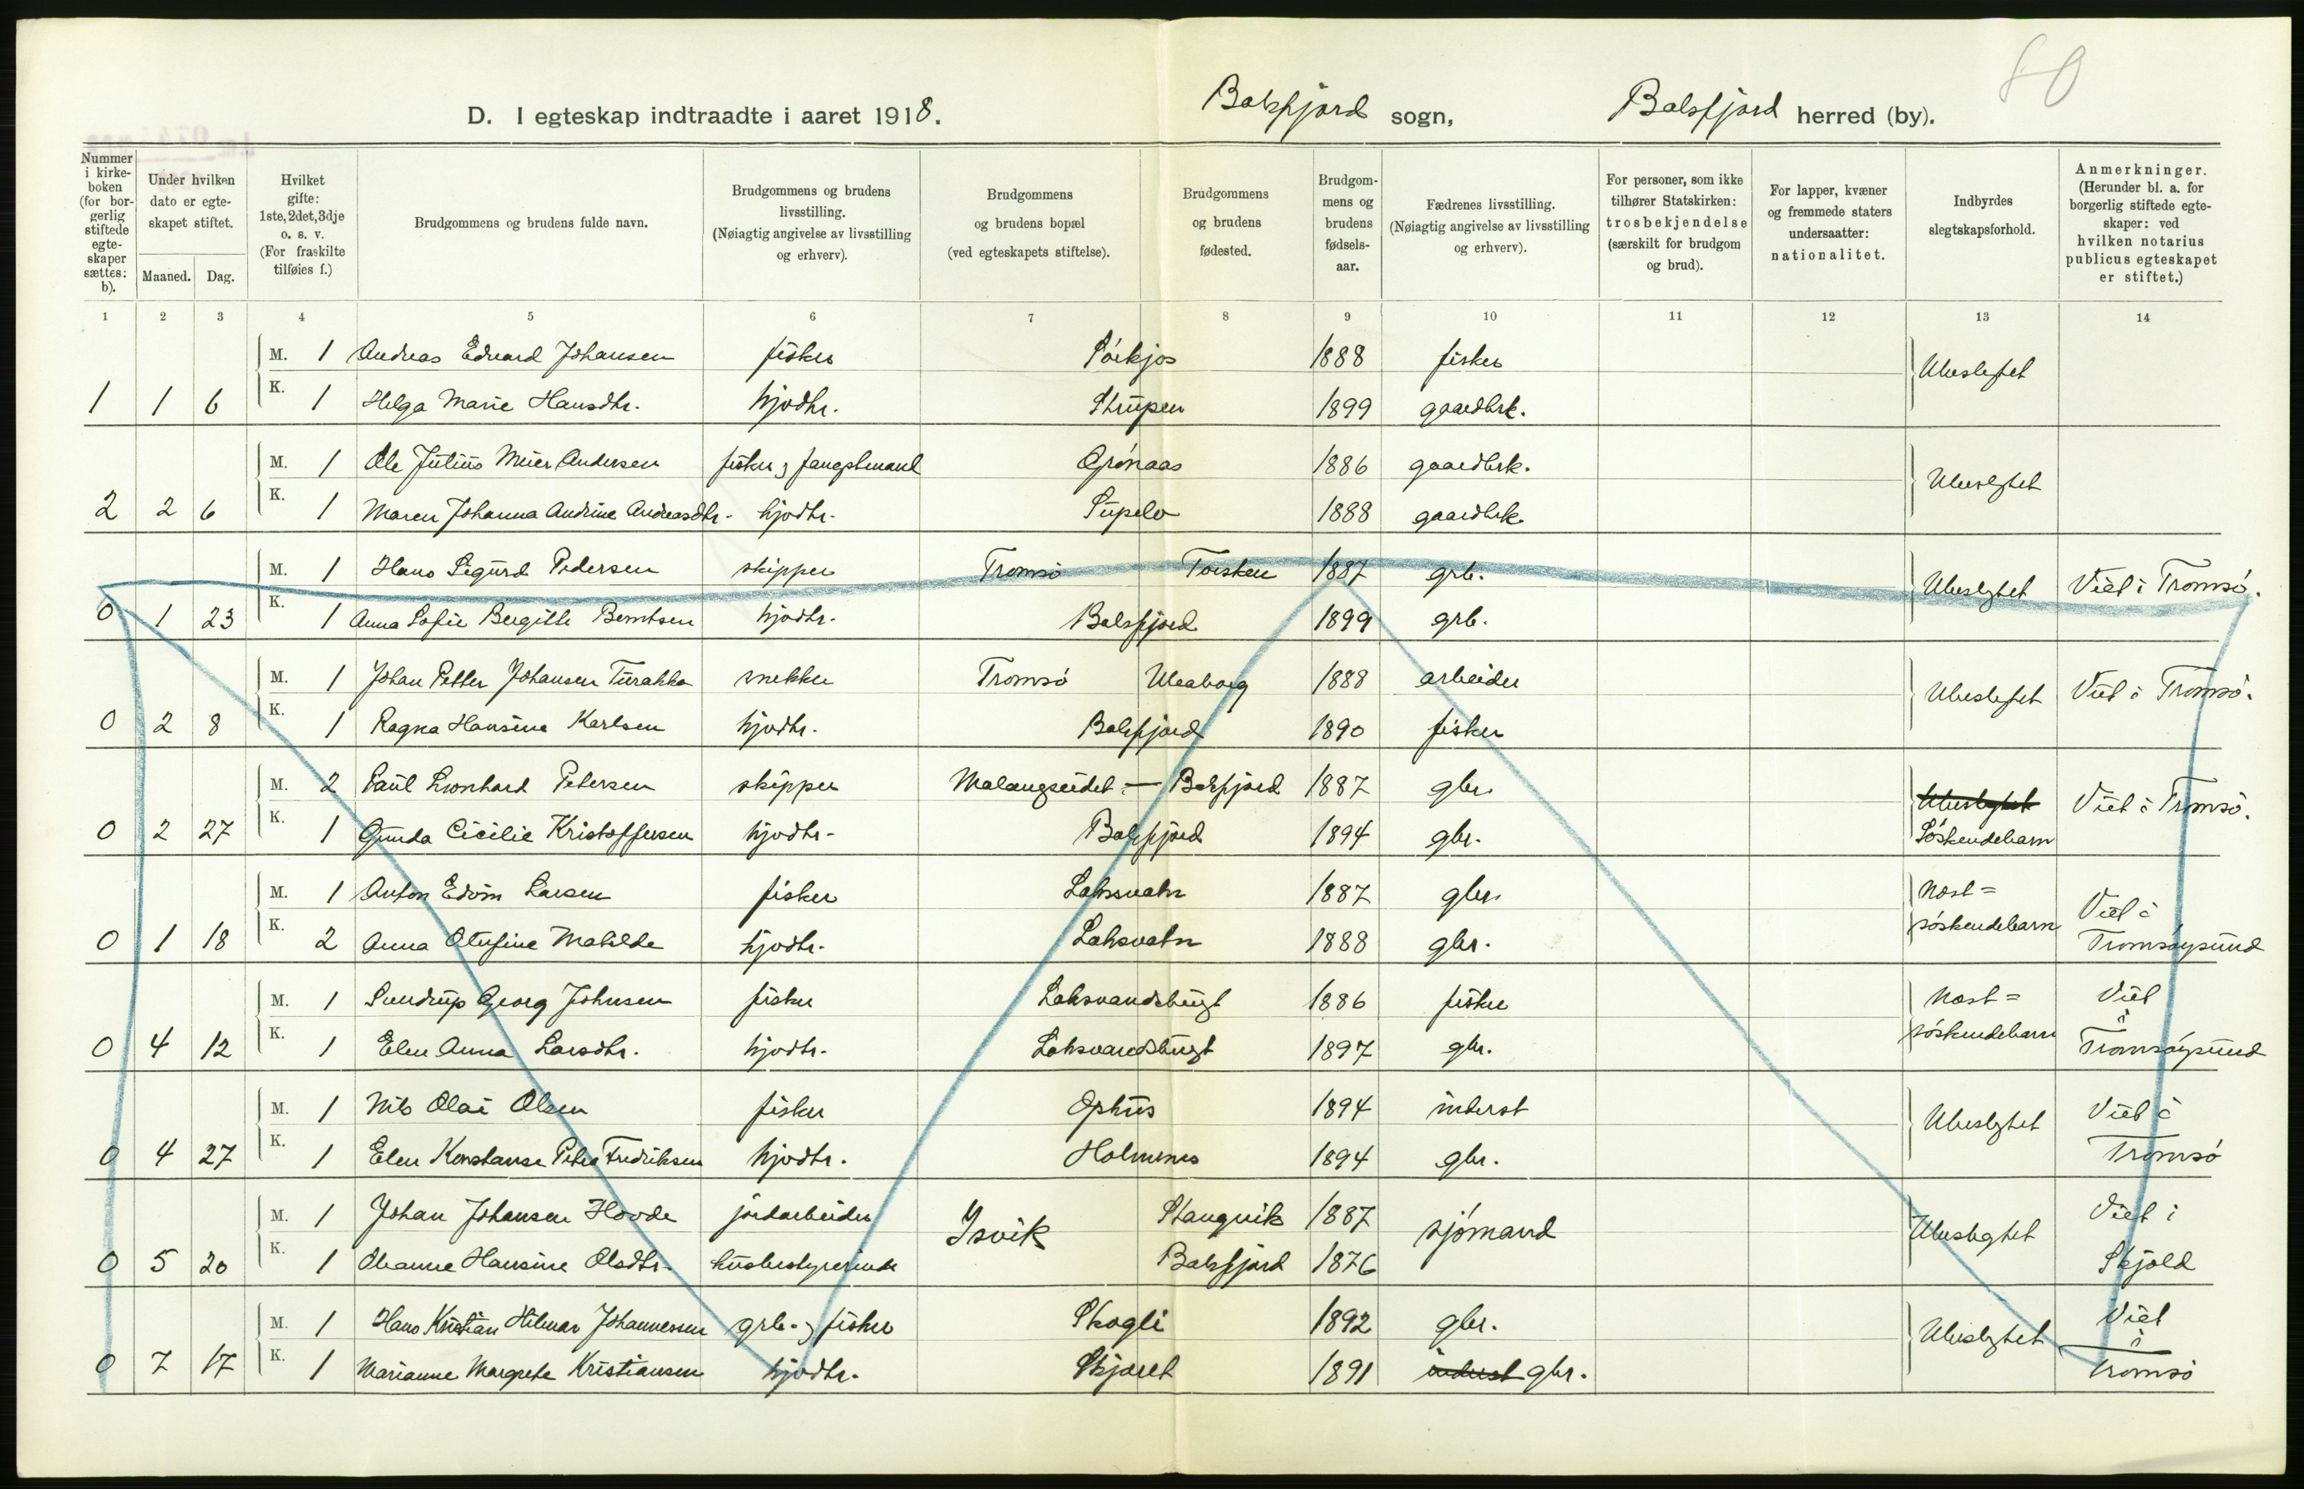 80
D. I egteskap indtraadte i aaret 1918. Balsfjord sogn, Balsfjord herred (by).
Nummer i kirke-boken (for bor-gerlig stiftede egte-skaper sættes: b).
Under hvilken dato er egte-skapet stiftet.
Maaned. Dag.
Hvilket gifte: 1ste, 2det, 3dje o. s. v. (For fraskilte tilføies f.)
Brudgommens og brudens fulde navn.
Brudgommens og brudens livsstilling. (Nøiagtig angivelse av livsstilling og erhverv).
Brudgommens og brudens bopæl (ved egteskapets stiftelse).
Brudgommens og brudens fødested.
Brudgom-mens og brudens fødsels-aar.
Fædrenes livsstilling. (Nøiagtig angivelse av livsstilling og erhverv).
For personer, som ikke tilhører Statskirken: trosbekjendelse (særskilt for brudgom og brud).
For lapper, kvæner og fremmede staters undersaatter: nationalitet.
Indbyrdes slegtskapsforhold.
Anmerkninger. (Herunder bl. a. for borgerlig stiftede egte-skaper: ved hvilken notarius publicus egteskapet er stiftet.)
1 2 3 4 5 6 7 8 9 10 11 12 13 14
M. 1 Andreas Edvard Johansen fisker 1888 fisker Ubeslegtet
1 1 6 K. 1 Helga Marie Hansdtr. hjvdtr. Strupen 1899 gaardbrk.
M. 1 Ole Julius Meier Andersen fisker og fangstmand Grønaas 1886 gaardbrk. Ubeslegtet
2 2 6 K. 1 Maren Johanna Andrine Andreasdtr. hjvdtr. 1888 gaardbrk.
M. 1 Hans Sigurd Pedersen skipper Tromsø Torsken 1887 grb. Ubeslegtet Viet i Tromsø.
0 1 23 K. 1 Anna Sofie Bergitte Berntsen hjvdtr. Balsfjord 1899 grb.
M. 1 Johan Petter Johansen Turakka snekker Tromsø Uleaborg 1888 arbeider Ubeslegtet Viet i Tromsø.
0 2 8 K. 1 Ragna Hansine Karlsen hjvdtr. Balsfjord 1890 fisker
M. 2 Paul Leonhard Petersen skipper Malangseidet – Balsfjord 1887 gbr. Ubeslegtet Viet i Tromsø.
0 2 27 K. 1 Gunda Cicilie Kristoffersen hjvdtr. Balsfjord 1894 gbr. Søskendebarn
M. 1 Anton Edvin Larsen fisker Laksvatn 1887 gbr. Næst= Viet i
0 1 18 K. 2 Anna Mathilde hjvdtr. Laksvatn 1888 gbr. søskendebarn Tromsøysund
M. 1 Georg Johnsen fisker Laksvandsbugt 1886 fisker Næst= Viet i
0 4 12 K. 1 Elen Anna Larsdtr. hjvdtr. Laksvandsbugt 1897 gbr. søskendebarn Tromsøysund
M. 1 Nils Olai Olsen fisker Ophus 1894 inderst Ubeslegtet Viet i
0 4 27 K. 1 Elen Konstanse Petra Fredriksen hjvdtr. Holmenes 1894 gbr. Tromsø
M. 1 Johan Johansen Hovde jordarbeider Isvik Stangvik 1887 sjømand Ubeslegtet Viet i
0 5 20 K. 1 Oleanne Hansine Olsdtr. husbestyrerinde Balsfjord 1876 Skjold
M. 1 Hans Kristian Hilmar Johannessen grb. og fisker Skogli 1892 gbr. Ubeslegtet Viet i
0 7 17 K. 1 Marianne Margrete Kristiansen hjvdtr. Skjæret 1891 inderst gbr. Tromsø